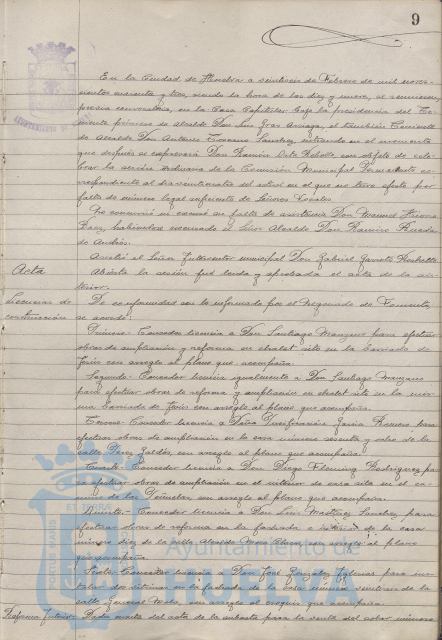 9
En la Ciudad de Huelva a veintiseis de Febrero de mil nove-
cientos cuarenta y tres, siendo la hora de las diez y nueve, se reunieron
previa convocatoria, en la Casa Capitular bajo la presidencia del Te-
niente primero de Alcalde Don Luis Gras Arraga, el también Teniente
de Alcalde Don Antonio Toscano Sanchez, entrando en el momento
que después se expresará Don Ramón Ortí Rebollo con objeto de cele-
brar la sesión ordinaria de la Comisión Municipal Permanente co-
rrespondiente al dia veinticuatro del actual en el que no tuvo efecto por
falta de número legal suficiente de Señores Vocales.
No concurrió ni excusó su falta de asistencia Don Manuel
Baez, habiéndose excusado el Señor Alcalde Don Ramiro Rueda
de Andrés.
Asistió el Señor Interventor municipal Don Gabriel Garrote
Acta
Abierta la sesión fué leida y aprobada el acta de la an-
terior.
Licencias de
construcción
De conformidad con lo informado por el Negociado de Fomento,
se acordó:
Primero: Conceder licencia a Don Santiago Manzano para efectuar
obras de ampliación y reforma en chalet sito en la Barriada de
con arreglo al plano que acompaña.
Segundo: Conceder licencia igualmente a Don Santiago Manzano
para efectuar obras de reforma y ampliación en chalet sito en la mis-
ma Barriada de con arreglo al plano que acompaña.
Tercero: Conceder licencia a Doña Purificación García Romero para
efectuar obras de ampliación en la casa número sesenta y ocho de la
calle Perez Galdós, con arreglo al plano que acompaña.
Cuarto: Conceder licencia a Don Diego Fleming Rodriguez pa-
ra efectuar obras de ampliación en el interior de casa sita en el ca-
mino de las con arreglo al plano que acompaña.
Quinto: Conceder licencia a Don Luis Martinez Sanchez para
efectuar obras de reforma en la fachada e interior de la casa
número diez de la calle Alcalde Mora Claros con arreglo al plano
que acompaña.
Sexto: Conceder licencia a Don José Gonzalez para ins-
talar dos vitrinas en la fachada de la casa número veintitres de la
calle General Mola, con arreglo al croquis que acompaña.
Reforma Interior
Dada cuenta del acta de la subasta para la venta del solar número
PORTUS MARIS ET TERRAE
Ayuntamiento de
HUELVA